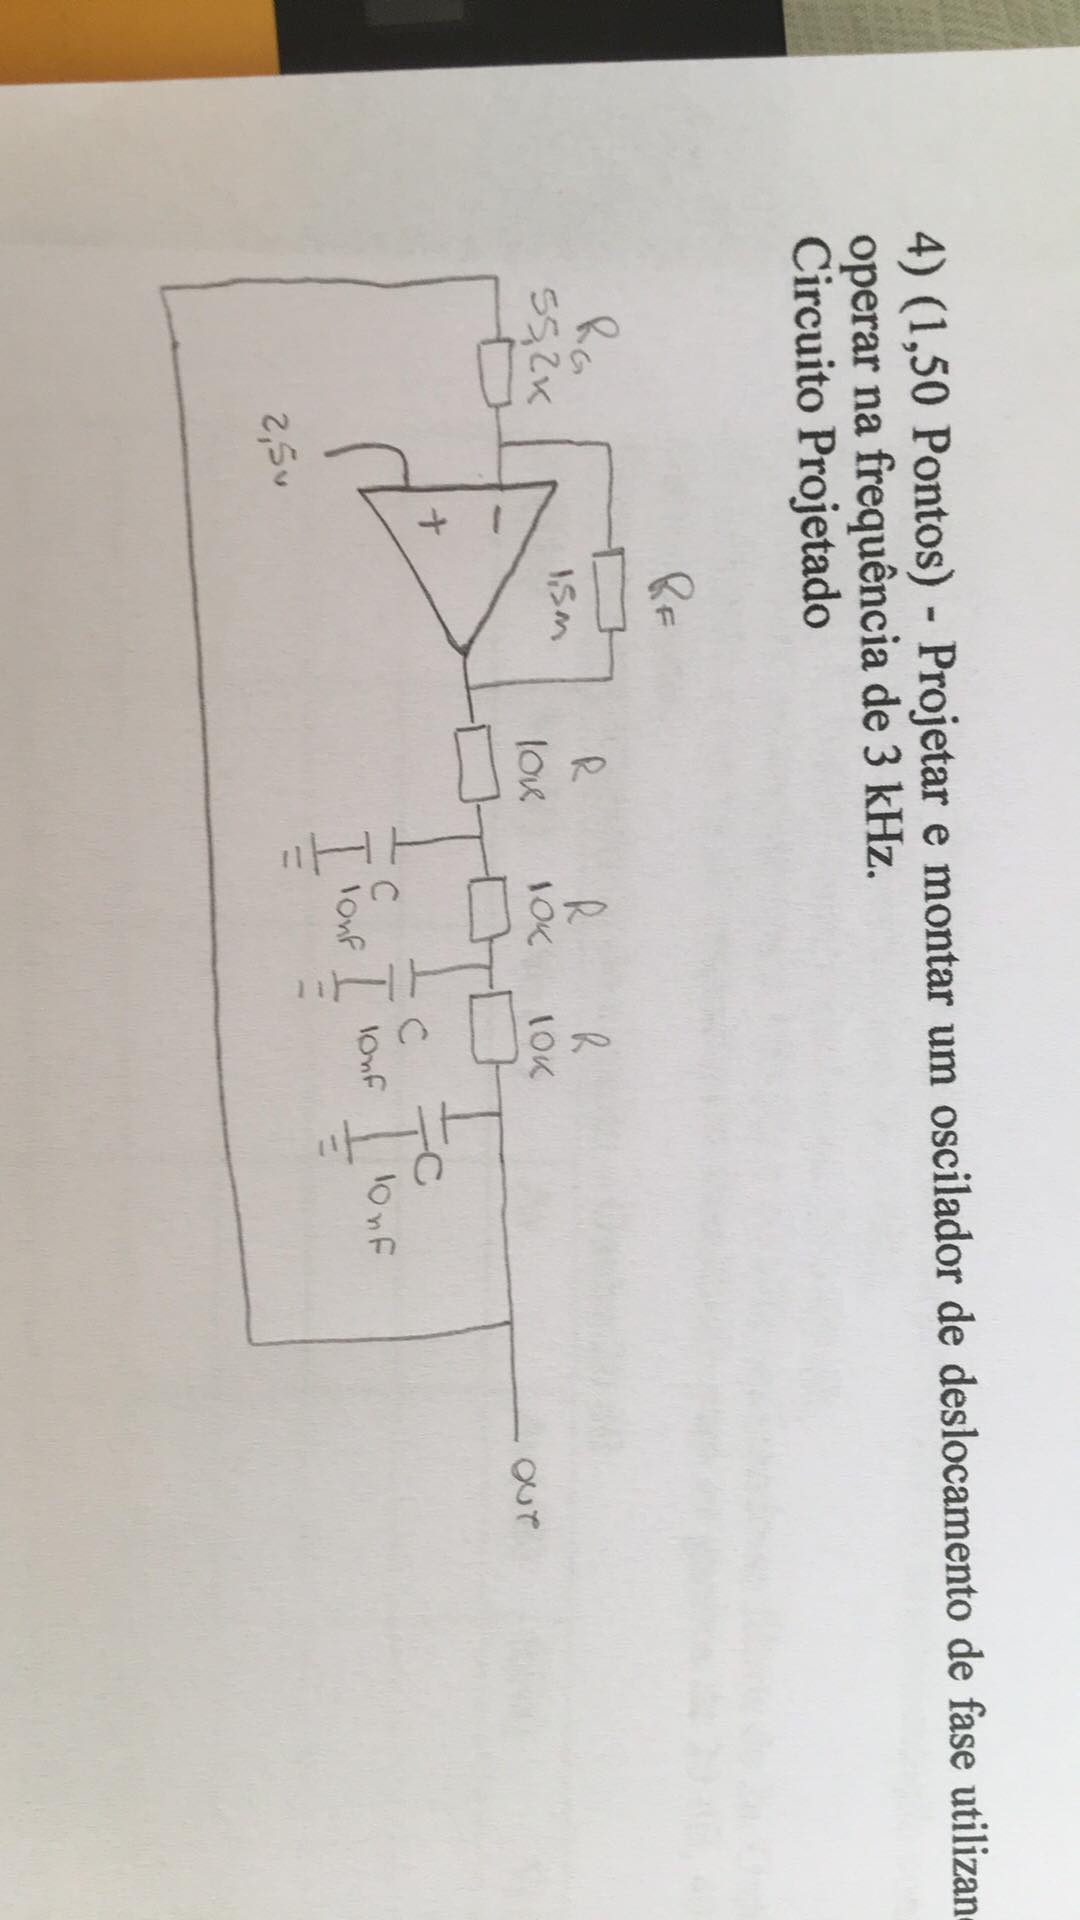 4) (1,50 Pontos) - Projetar e montar um oscilador de deslocamento de fase
operar na frequência de 3 kHz.
Circuito Projetado
RF
1,5M
RG
55,2K
R
10K
R
10K
R
10K
OUT
-
+
2,5v
C
10nF
C
10nF
C
10nF